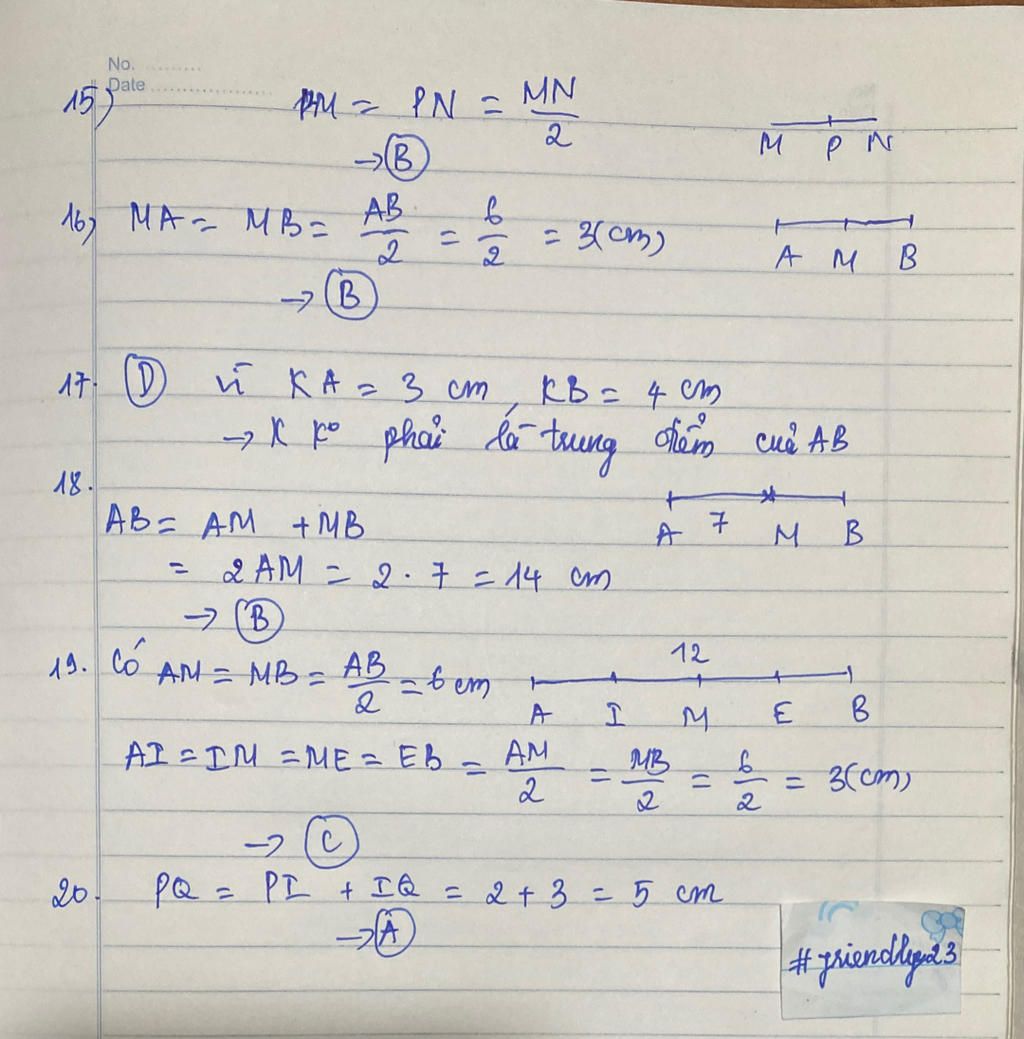 No. ..........
Date .....................
15) PM = PN = MN/2
M P N
→ B
16) MA = MB = AB/2 = 6/2 = 3(cm)
A M B
→ B
17. D vì KA = 3 cm, KB = 4 cm
→ K ko phải là trung điểm của AB
18.
AB = AM + MB
A 7 M B
= 2AM = 2 . 7 = 14 cm
→ B
19. Có AM = MB = AB/2 = 6 cm
12
A I M E B
AI = IM = ME = EB = AM/2 = MB/2 = 6/2 = 3(cm)
→ C
20. PQ = PI + IQ = 2 + 3 = 5 cm
→ A
#friendly23